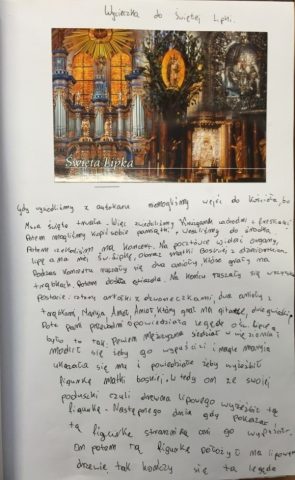 Wycieczka do Świętej Lipki.
Święta Lipka
Gdy wyszliśmy z autokaru nie mogliśmy wejść do kościoła, bo
Msza święta trwała. Więc zwiedziliśmy krużganek z freskami.
Potem mogliśmy kupić sobie pamiątki, weszliśmy do środka.
Potem czekaliśmy na koncert. Na pocztówce widać organy,
lipę a na niej św. Lipkę, obraz matki Boskiej z
Podczas koncertu ruszały się dwa anioły, które grały na
trąbkach. Potem doszła gwiazda. Na końcu ruszały się wszystkie
postacie: cztery aniołki z dzwoneczkami, dwa anioły z
trąbkami, Maryja, Anioł, Anioł, który grał na gitarze,
Pote pani przewodnik opowiedziała legędę o św. Lipce
było to tak. Pewien mężczyzna siedział w więzieniu i
modlił się żeby go wypuścili i Maryja
ukazała się mu i powiedziała żeby wyrzeźbił
figurkę matki boskiej. Wtedy on ze swojej
poduszki czyli drewna lipowego wyrzeźbił tą
figurkę. Następnego dnia gdy pokazał
tą figurkę strażnikom oni go wypuścili.
On potem tą figurkę położył na lipowym
drzewie tak kończy się ta legęda